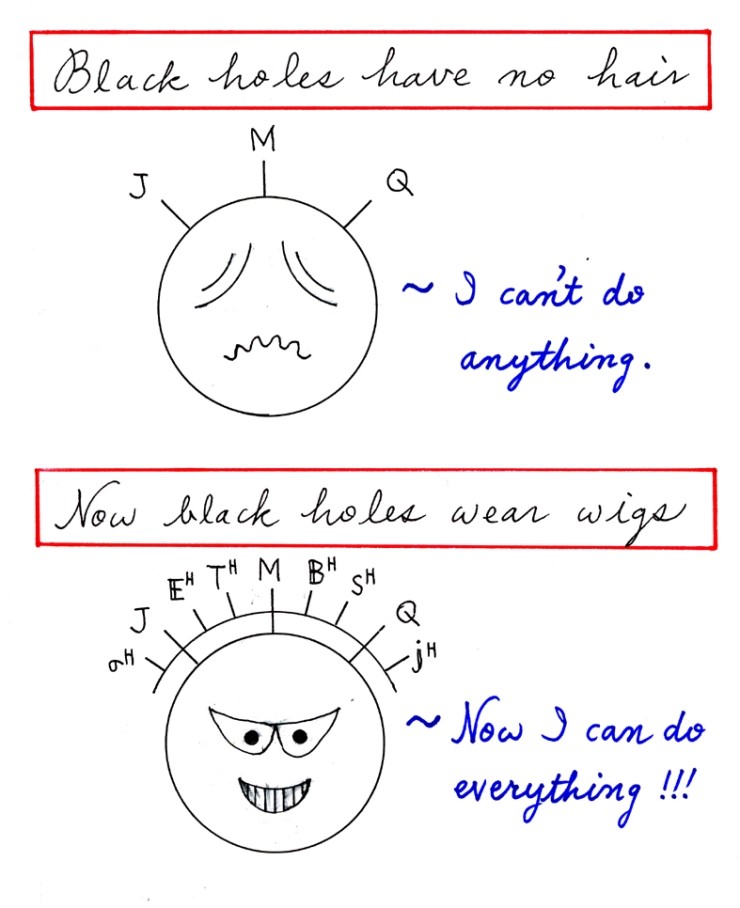 Black holes have no hair
M
J Q
~ I can't do
anything.
Now black holes wear wigs
Eᴴ Tᴴ M Bᴴ Sᴴ
J Q
σᴴ jᴴ
~ Now I can do
everything !!!